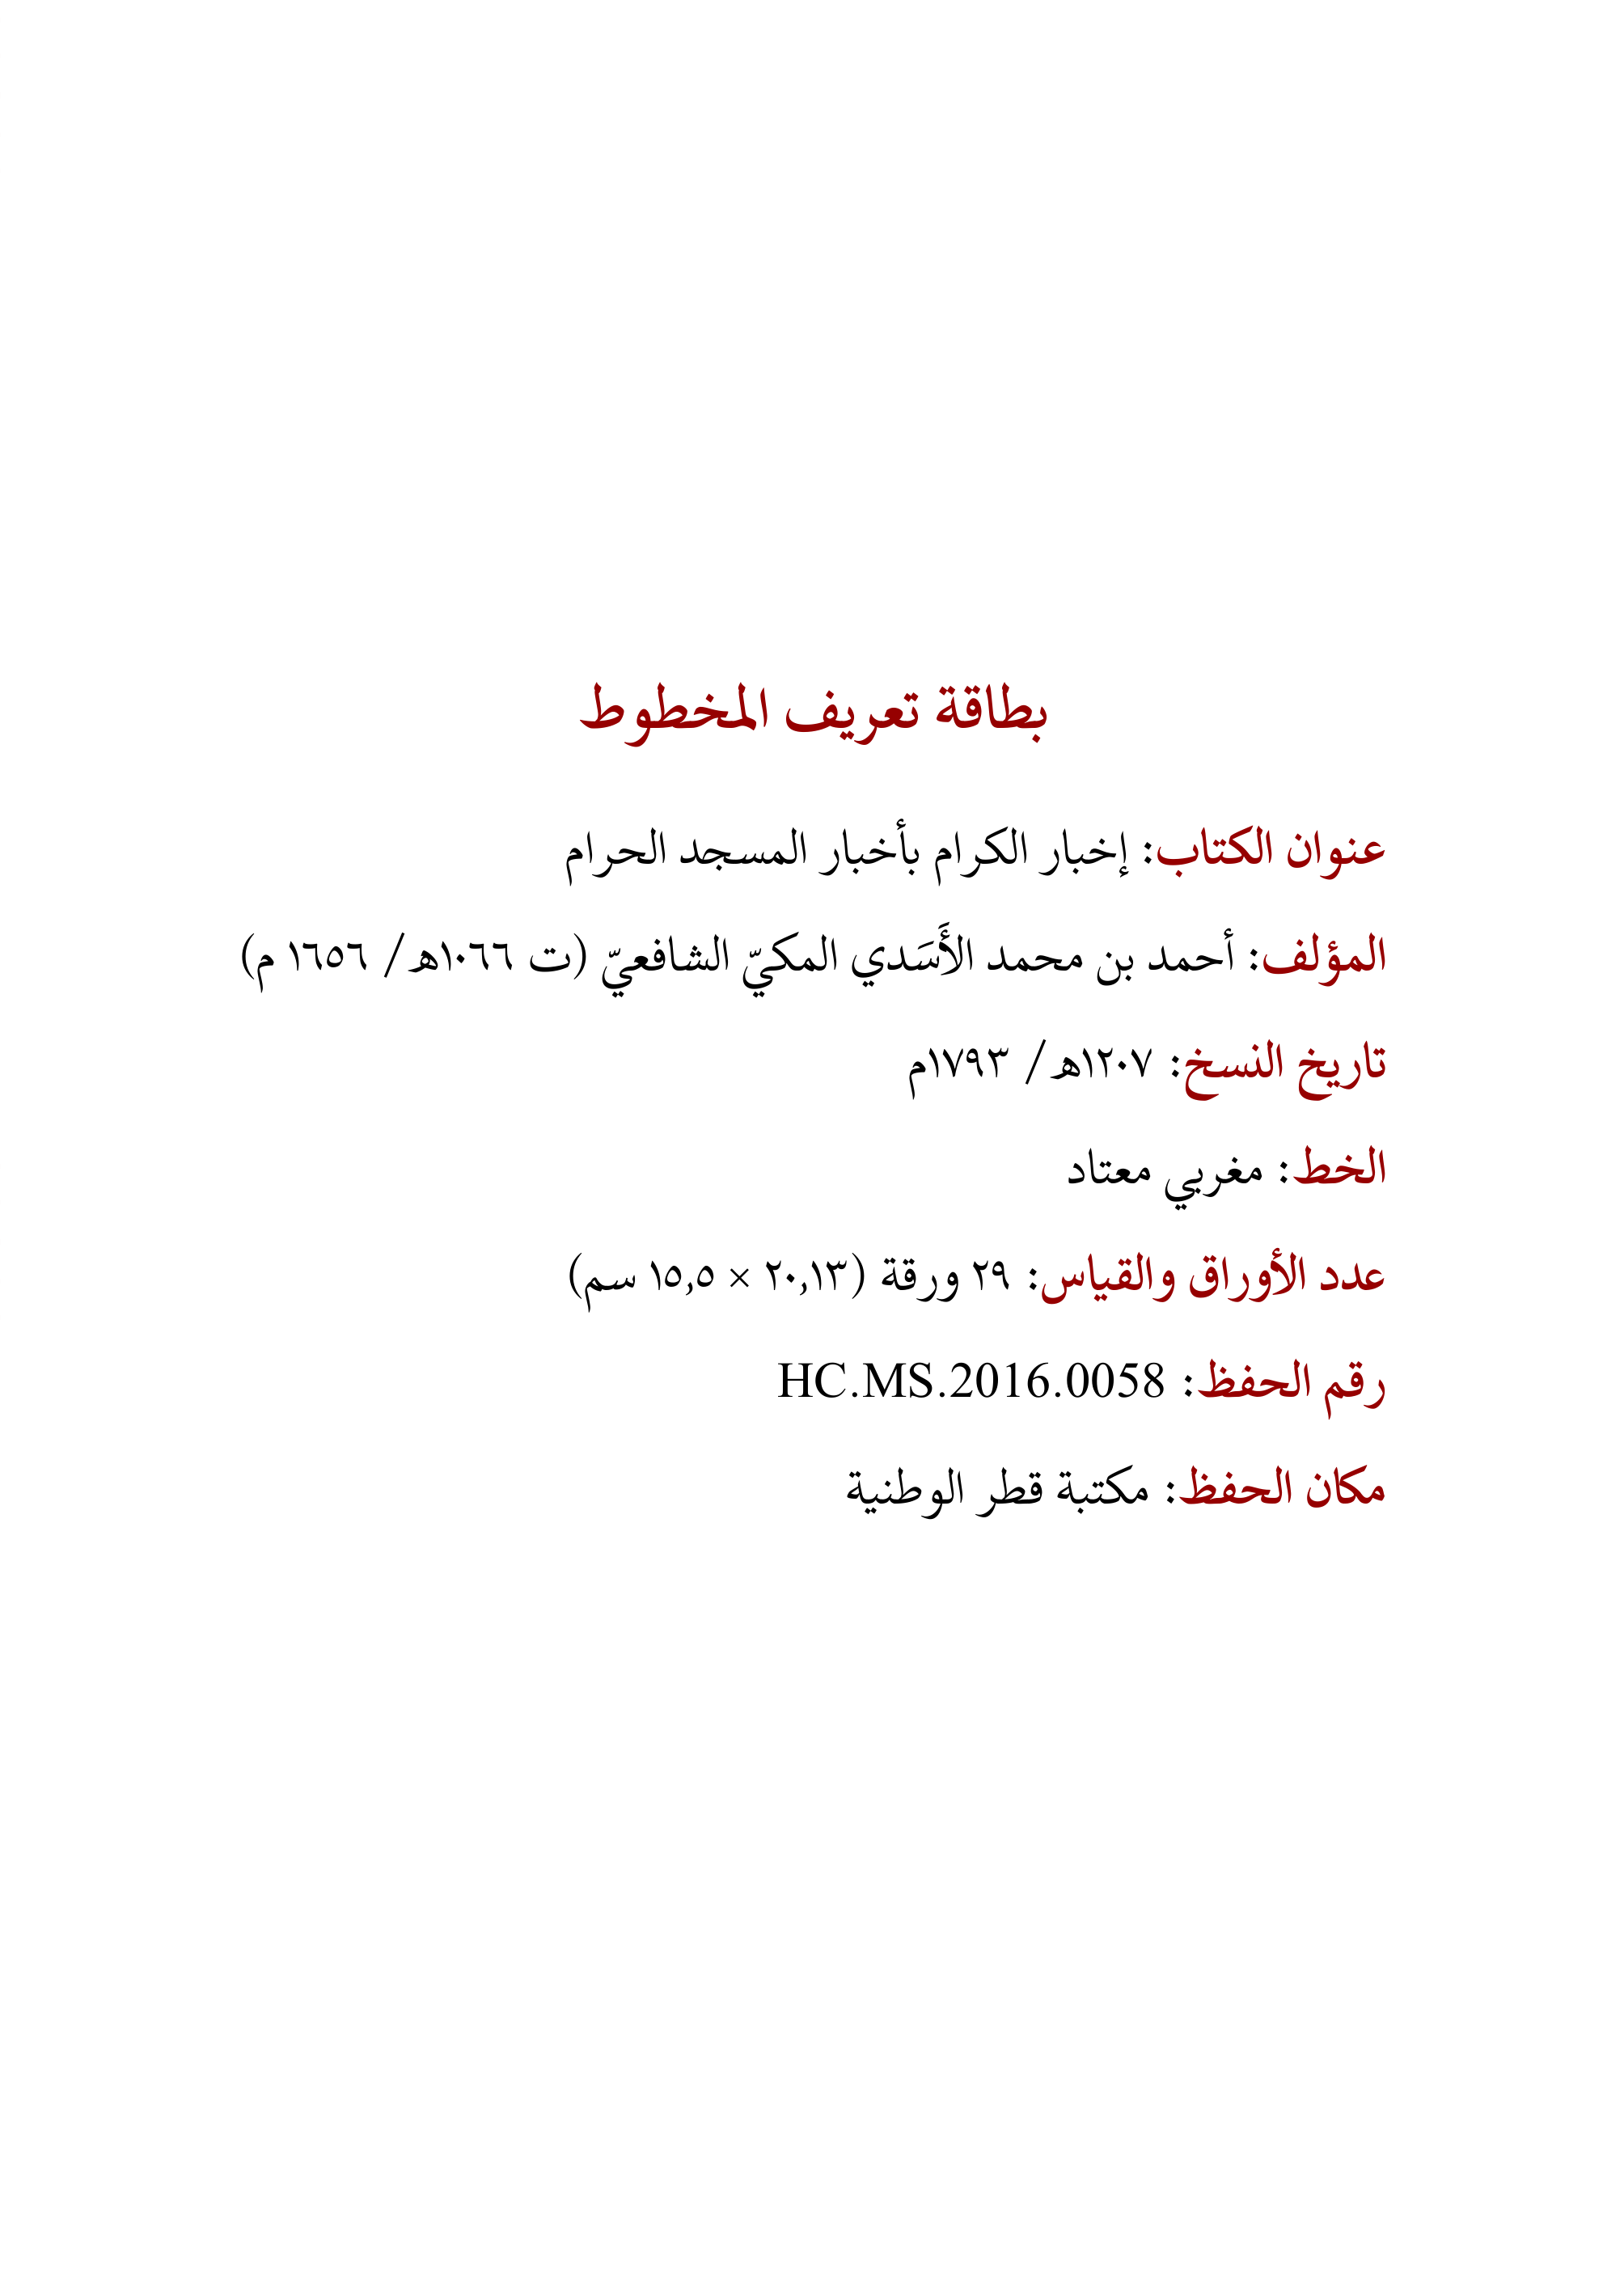 بطاقة تعريف المخطوط
عنوان الكتاب: إخبار الكرام بأخبار المسجد الحرام
المؤلف: أحمد بن محمد الأَسَدي المكيّ الشافعيّ (ت ١٠٦٦هـ/ ١٦٥٦ م)
تاريخ النسخ: ١٢٠٧هـ/ ١٧٩٣م
الخط: مغربي معتاد
عدد الأوراق والقياس: ٢٩ ورقة (٢٠,١٣ × ١٥,٥ سم)
رقم الحفظ: HC.MS.2016.0058
مكان الحفظ: مكتبة قطر الوطنية